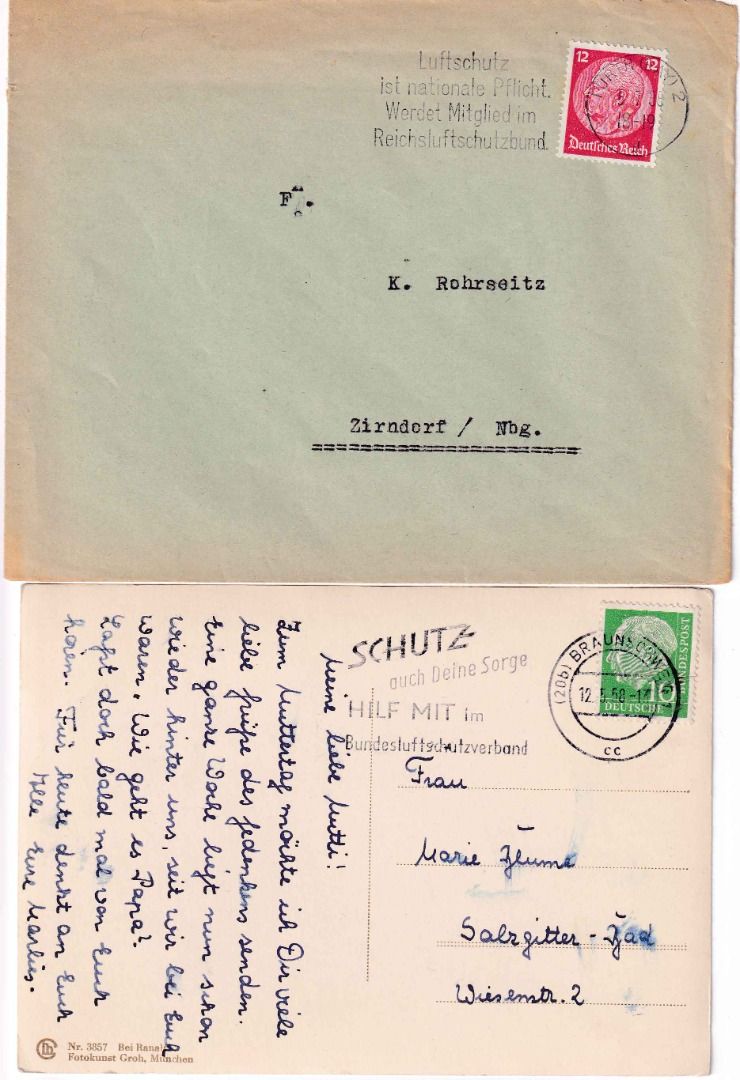 Luftschutz
ist nationale Pflicht.
Werdet Mitglied im
Reichsluftschutzbund.
12 12
Deutsches Reich
2
18-19
F .
K. Rohrseitz
Zirndorf / Nbg.
SCHUTZ
auch Deine Sorge
HILF MIT im
Bundesluftschutzverband
(20b) BRAUNSCHWEIG
12.5.58
cc
DEUTSCHE
BUNDESPOST
Meine liebe Mutti!
Zum Muttertag möchte ich Dir viele
liebe Grüße des Gedenkens senden.
Eine ganze Woche liegt nun schon
wieder hinter uns, seit wir bei Euch
waren. Wie geht es Papa?
Laßt doch bald mal von Euch
hören. Für heute denkt an Euch
Eure Marlies.
Frau
Marie Blume
Salzgitter-Bad
Wiesenstr. 2
Nr. 3857 Bei
Fotokunst Groh, München